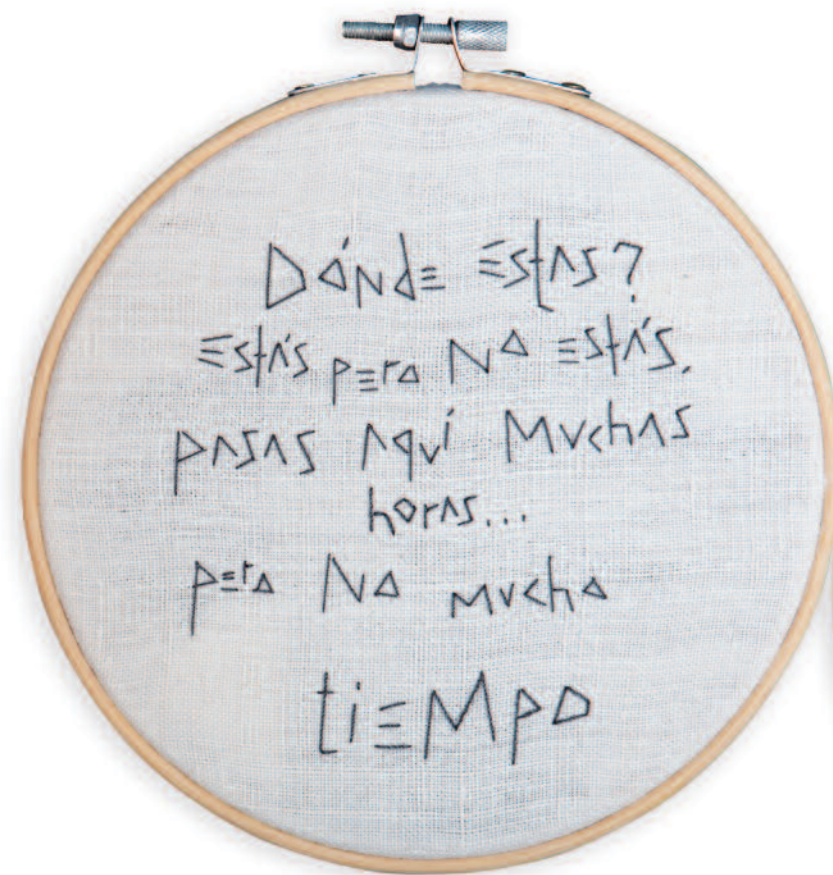 Dónde estas?
Estás pero No estás.
pasas aquí Muchas
horas...
pero No mucho
tiEMpo